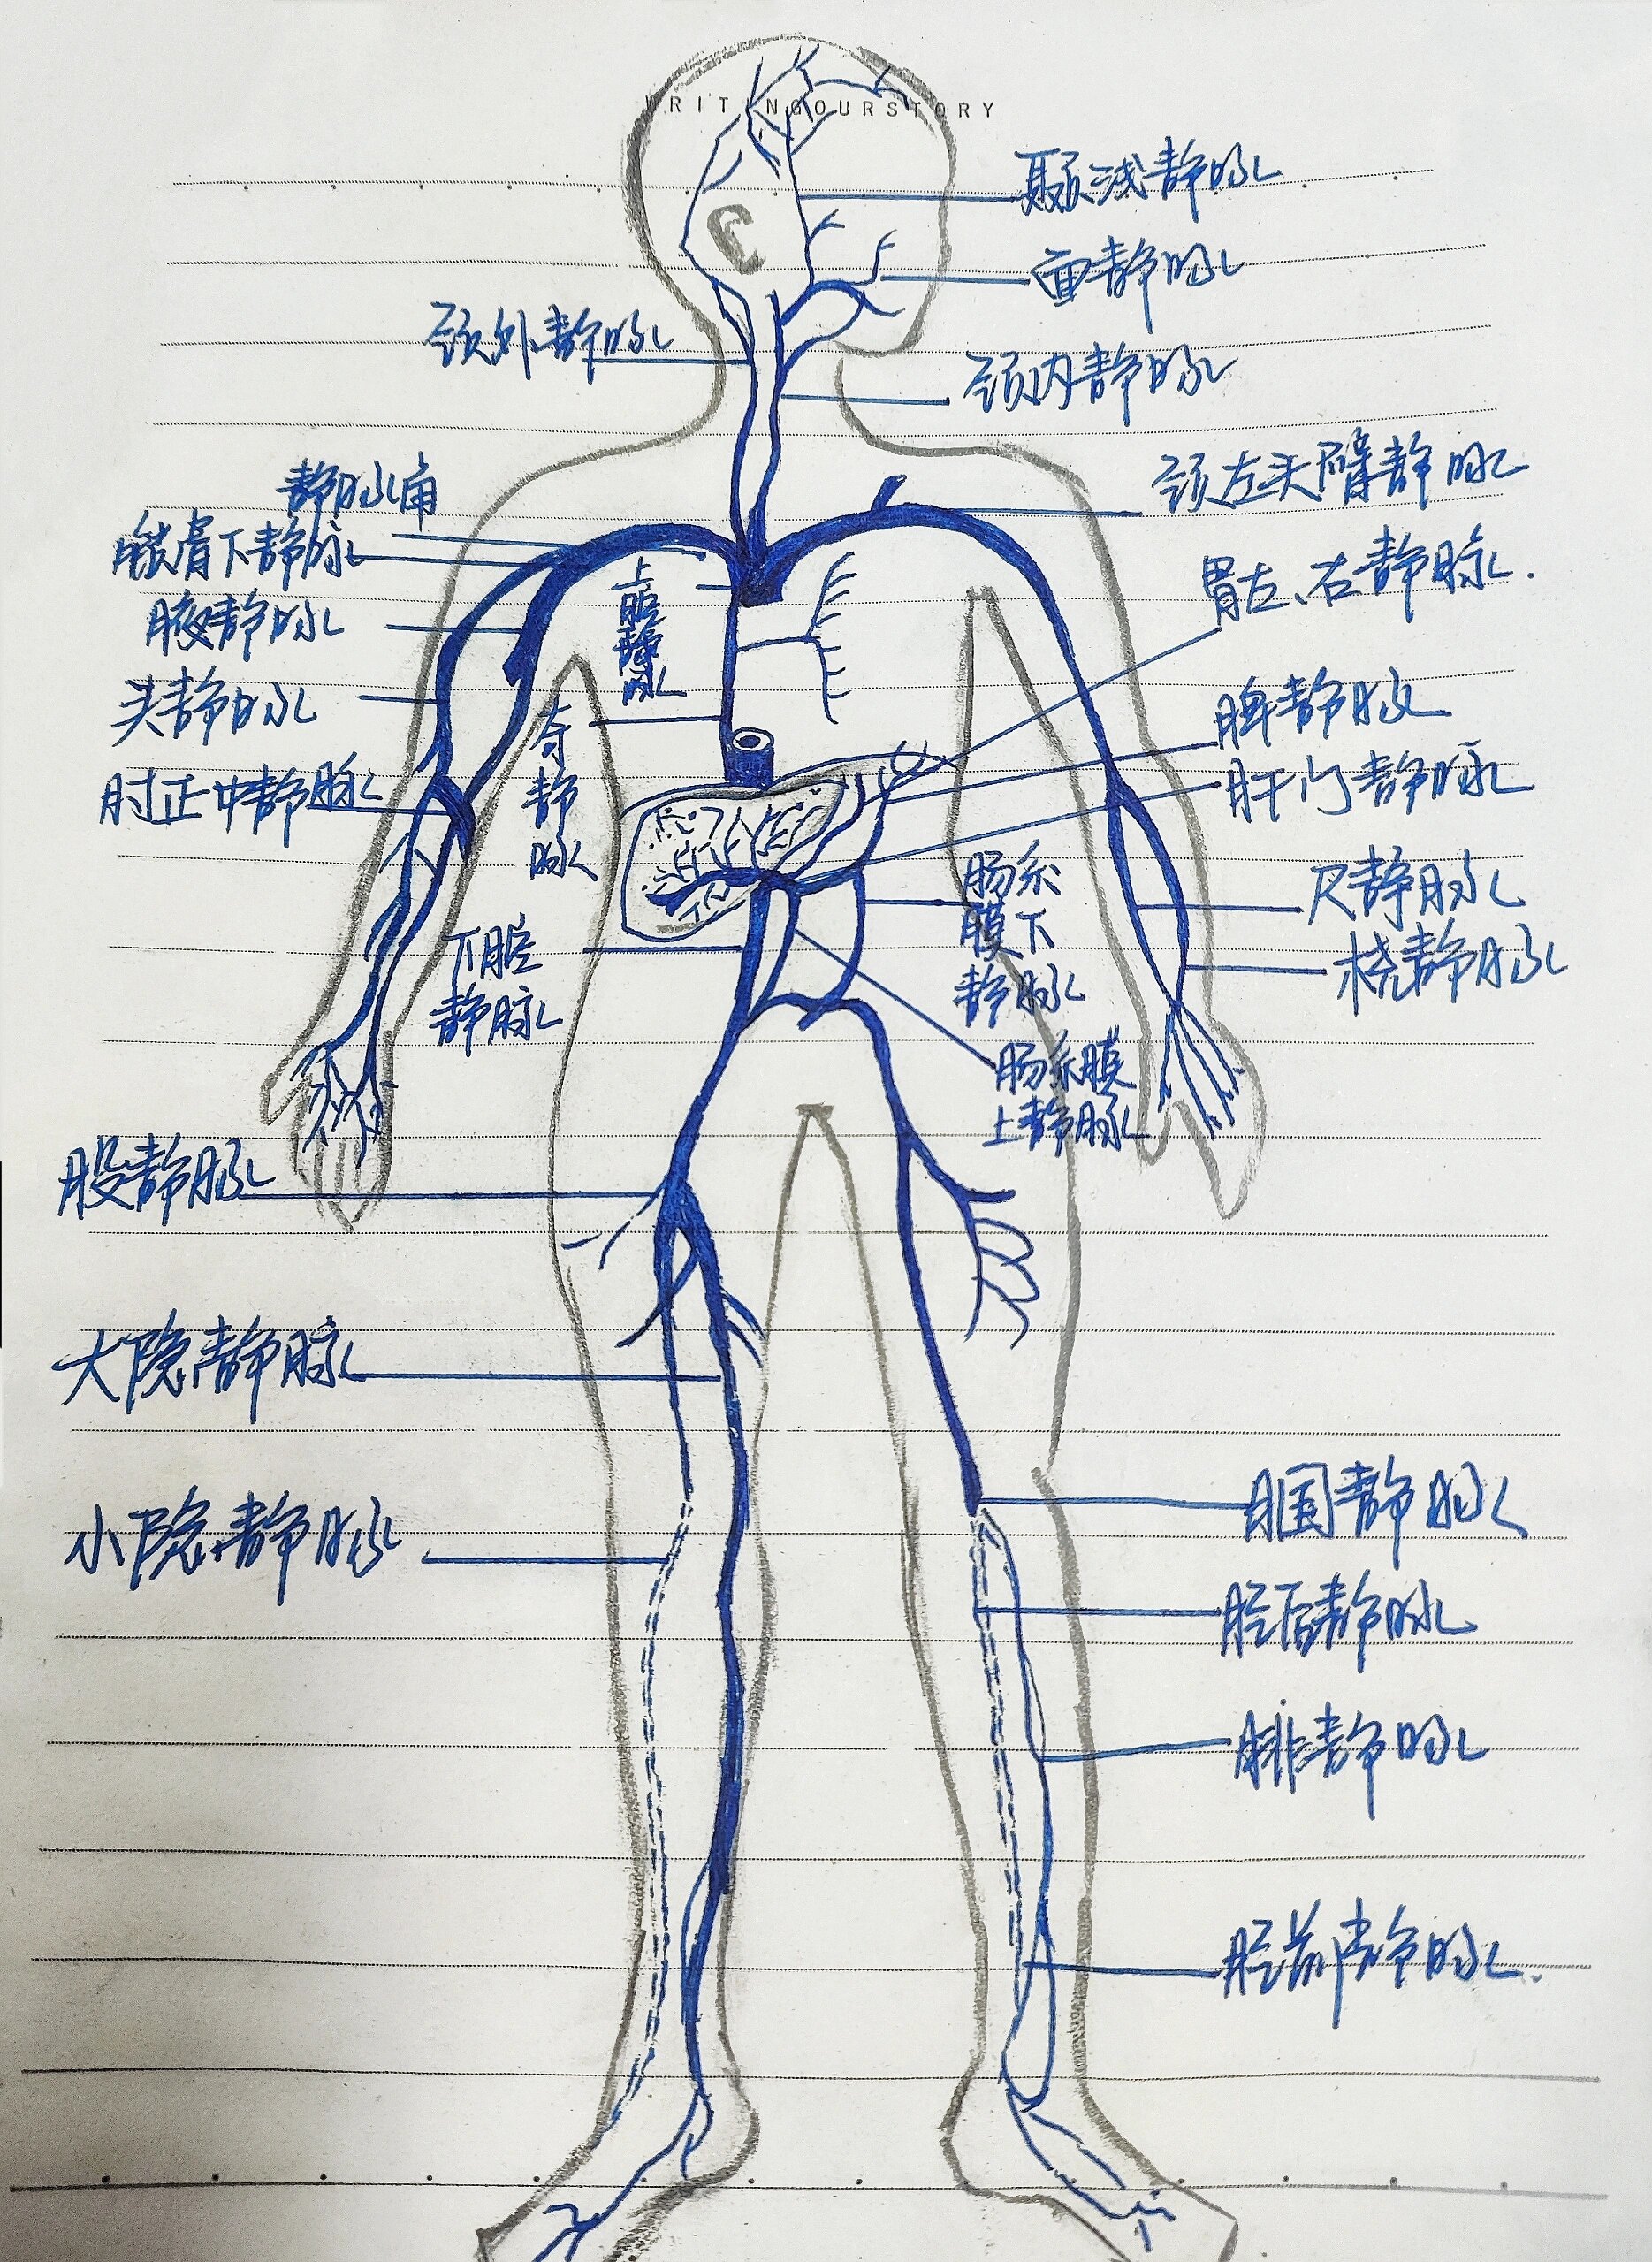 WRITINGOURSTORY
颞浅静脉
面静脉
颈外静脉
颈内静脉
静脉角
颈左头臂静脉
锁骨下静脉
上腔静脉
胃左、右静脉.
腋静脉
头静脉
奇静脉
脾静脉
肘正中静脉
肝门静脉
肠系
膜下
静脉
尺静脉
下腔
静脉
桡静脉
肠系膜
上静脉
股静脉
大隐静脉
小隐静脉
腘静脉
胫后静脉
腓静脉
胫前静脉.